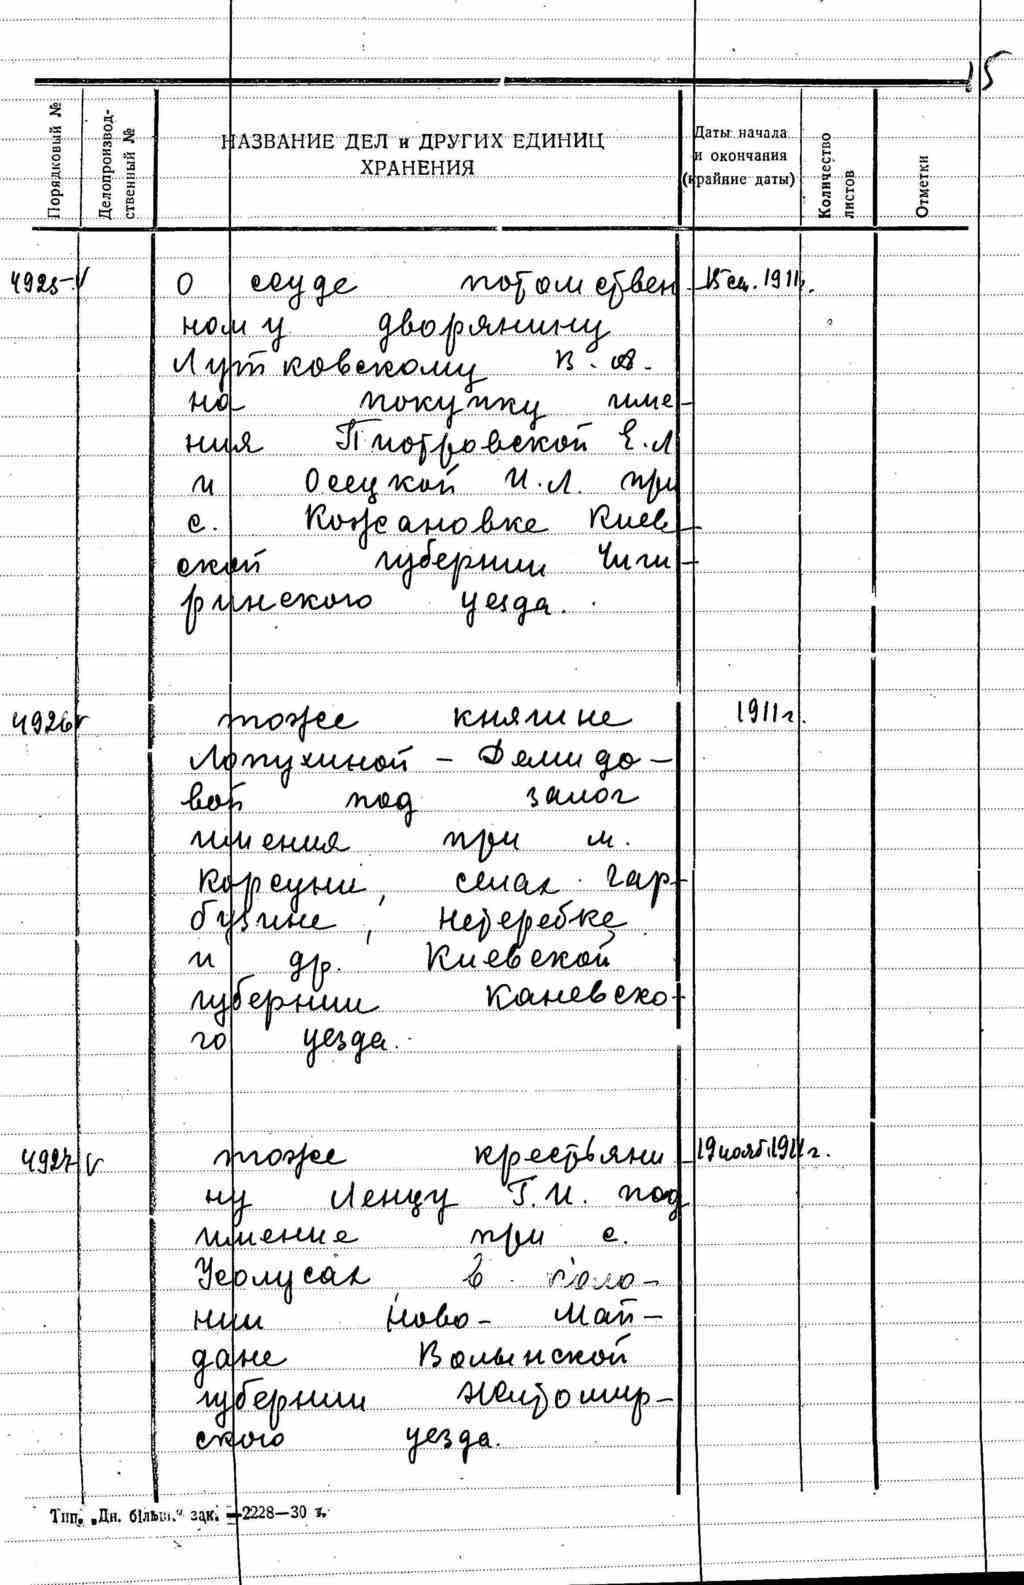 15
Порядковый №
Делопроизвод-
ственный №
НАЗВАНИЕ ДЕЛ и ДРУГИХ ЕДИНИЦ
ХРАНЕНИЯ
Даты начала
и окончания
(крайние даты)
Количество
листов
Отметки
4925 V О ссуде потомствен 1911г.
ному дворянину
Лутковскому В.
на покупку име-
ния Пиотровской Е.Л
и Осецкой И.Л. при
с. Кожановке Киев-
ской губернии Чиги-
ринского уезда.
4926 V тоже княгине 1911г.
Лопухиной - Демидо-
вой под залог
имения при м.
Корсуни, селах Гар-
бузине, Нетеребке
и др. Киевской
губернии Каневско-
го уезда.
4927 V тоже крестьяни 19 нояб. 1911г.
ну Ленцу Г.И. под
имение при с.
в коло-
нии Ново- Май-
дане Волынской
губернии Житомир-
ского уезда.
Тип. „Дн. більш." зак. —2228—30 т.